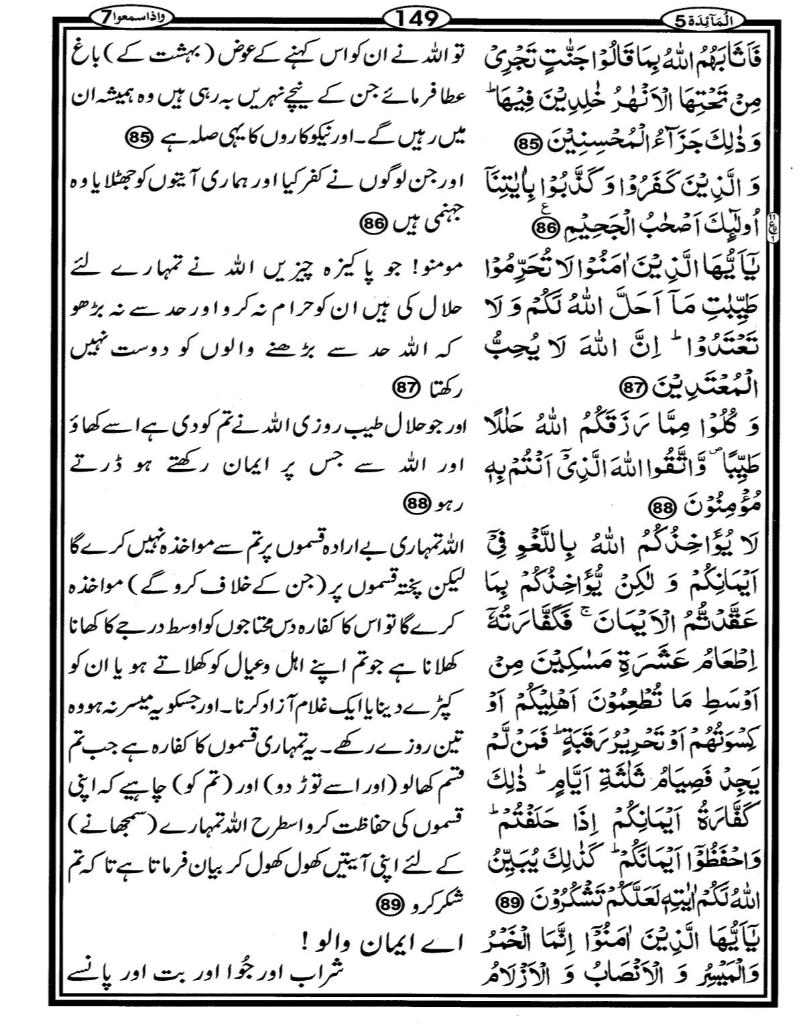 اَلْمَآئِدَة 5
149
واذاسمعوا 7
فَاَثَابَهُمُ اللّٰهُ بِمَا قَالُوْا جَنّٰتٍ تَجْرِیْ
مِنْ تَحْتِهَا الْاَنْهٰرُ خٰلِدِیْنَ فِیْهَا ؕ
وَ ذٰلِكَ جَزَآءُ الْمُحْسِنِیْنَ 85
وَ الَّذِیْنَ كَفَرُوْا وَ كَذَّبُوْا بِاٰیٰتِنَاۤ
اُولٰٓىِٕكَ اَصْحٰبُ الْجَحِیْمِ 86 ع
یٰۤاَیُّهَا الَّذِیْنَ اٰمَنُوْا لَا تُحَرِّمُوْا
طَیِّبٰتِ مَاۤ اَحَلَّ اللّٰهُ لَكُمْ وَ لَا
تَعْتَدُوْا ؕ اِنَّ اللّٰهَ لَا یُحِبُّ
الْمُعْتَدِیْنَ 87
وَ كُلُوْا مِمَّا رَزَقَكُمُ اللّٰهُ حَلٰلًا
طَیِّبًا ۪ وَّ اتَّقُوا اللّٰهَ الَّذِیْۤ اَنْتُمْ بِهٖ
مُؤْمِنُوْنَ 88
لَا یُؤَاخِذُكُمُ اللّٰهُ بِاللَّغْوِ فِیْۤ
اَیْمَانِكُمْ وَ لٰكِنْ یُّؤَاخِذُكُمْ بِمَا
عَقَّدْتُّمُ الْاَیْمَانَ ۚ فَكَفَّارَتُهٗۤ
اِطْعَامُ عَشَرَةِ مَسٰكِیْنَ مِنْ
اَوْسَطِ مَا تُطْعِمُوْنَ اَهْلِیْكُمْ اَوْ
كِسْوَتُهُمْ اَوْ تَحْرِیْرُ رَقَبَةٍ ؕ فَمَنْ لَّمْ
یَجِدْ فَصِیَامُ ثَلٰثَةِ اَیَّامٍ ؕ ذٰلِكَ
كَفَّارَةُ اَیْمَانِكُمْ اِذَا حَلَفْتُمْ ؕ
وَ احْفَظُوْۤا اَیْمَانَكُمْ ؕ كَذٰلِكَ یُبَیِّنُ
اللّٰهُ لَكُمْ اٰیٰتِهٖ لَعَلَّكُمْ تَشْكُرُوْنَ 89
یٰۤاَیُّهَا الَّذِیْنَ اٰمَنُوْۤا اِنَّمَا الْخَمْرُ
وَ الْمَیْسِرُ وَ الْاَنْصَابُ وَ الْاَزْلَامُ
تو اللہ نے ان کو اس کہنے کے عوض (بہشت کے) باغ
عطا فرمائے جن کے نیچے نہریں بہ رہی ہیں وہ ہمیشہ ان
میں رہیں گے۔ اور نیکوکاروں کا یہی صلہ ہے 85
اور جن لوگوں نے کفر کیا اور ہماری آیتوں کو جھٹلایا وہ
جہنمی ہیں 86
مومنو! جو پاکیزہ چیزیں اللہ نے تمہارے لئے
حلال کی ہیں ان کو حرام نہ کرو اور حد سے نہ بڑھو
کہ اللہ حد سے بڑھنے والوں کو دوست نہیں
رکھتا 87
اور جو حلال طیب روزی اللہ نے تم کو دی ہے اسے کھاؤ
اور اللہ سے جس پر ایمان رکھتے ہو ڈرتے
رہو 88
اللہ تمہاری بے ارادہ قسموں پر تم سے مواخذہ نہیں کرے گا
لیکن پختہ قسموں پر (جن کے خلاف کرو گے) مواخذہ
کرے گا تو اس کا کفارہ دس محتاجوں کو اوسط درجے کا کھانا
کھلانا ہے جو تم اپنے اہل و عیال کو کھلاتے ہو یا ان کو
کپڑے دینا یا ایک غلام آزاد کرنا۔ اور جسکو یہ میسر نہ ہو وہ
تین روزے رکھے۔ یہ تمہاری قسموں کا کفارہ ہے جب تم
قسم کھا لو (اور اسے توڑ دو) اور (تم کو) چاہیے کہ اپنی
قسموں کی حفاظت کرو اسطرح اللہ تمہارے (سمجھانے)
کے لئے اپنی آیتیں کھول کھول کر بیان فرماتا ہے تا کہ تم
شکر کرو 89
اے ایمان والو!
شراب اور جُوا اور بت اور پانسے